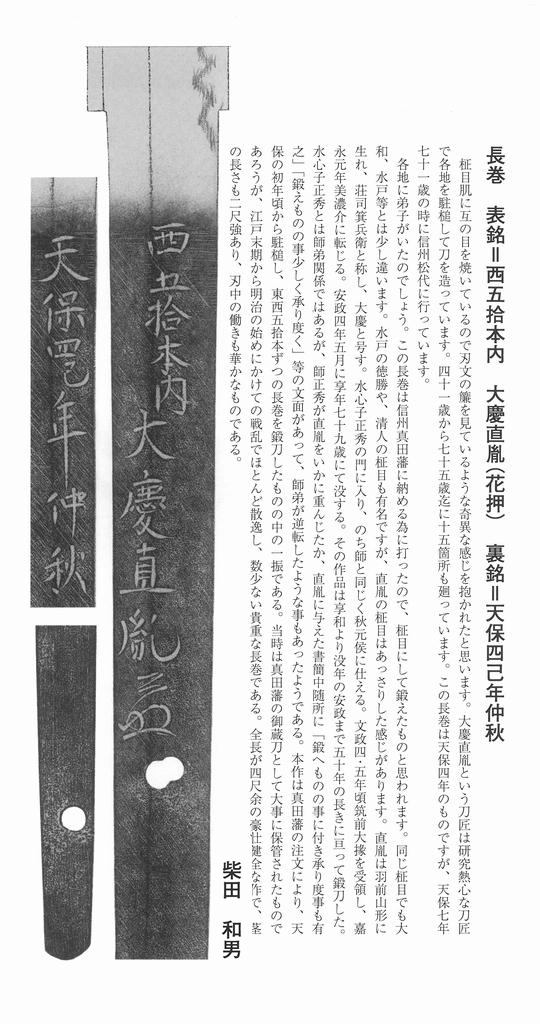 長巻　表銘＝西五拾本内　大慶直胤（花押）　裏銘＝天保四己年仲秋
柾目肌に互の目を焼いているので刃文の簾を見ているような奇異な感じを抱かれたと思います。大慶直胤という刀匠は研究熱心な刀匠
で各地を駐槌して刀を造っています。四十一歳から七十五歳迄に十五箇所も廻っています。この長巻は天保四年のものですが、天保七年
七十一歳の時に信州松代に行っています。
各地に弟子がいたのでしょう。この長巻は信州真田藩に納める為に打ったので、柾目にして鍛えたものと思われます。同じ柾目でも大
和、水戸等とは少し違います。水戸の徳勝や、清人の柾目も有名ですが、直胤の柾目はあっさりした感じがあります。直胤は羽前山形に
生れ、荘司箕兵衛と称し、大慶と号す。水心子正秀の門に入り、のち師と同じく秋元侯に仕える。文政四・五年頃筑前大掾を受領し、嘉
永元年美濃介に転じる。安政四年五月に享年七十九歳にて没する。その作品は享和より没年の安政まで五十年の長きに亘って鍛刀した。
水心子正秀とは師弟関係ではあるが、師正秀が直胤をいかに重んじたか、直胤に与えた書簡中随所に「鍛へものの事に付き承り度事も有
之」「鍛えものの事少しく承り度く」等の文面があって、師弟が逆転したような事もあったようである。本作は真田藩の注文により、天
保の初年頃から駐槌し、東西五拾本ずつの長巻を鍛刀したものの中の一振である。当時は真田藩の御蔵刀として大事に保管されたもので
あろうが、江戸末期から明治の始めにかけての戦乱でほとんど散逸し、数少ない貴重な長巻である。全長が四尺余の豪壮健全な作で、茎
の長さも二尺強あり、刃中の働きも華かなものである。
柴田　和男
西五拾本内　大慶直胤
天保四巳年仲秋